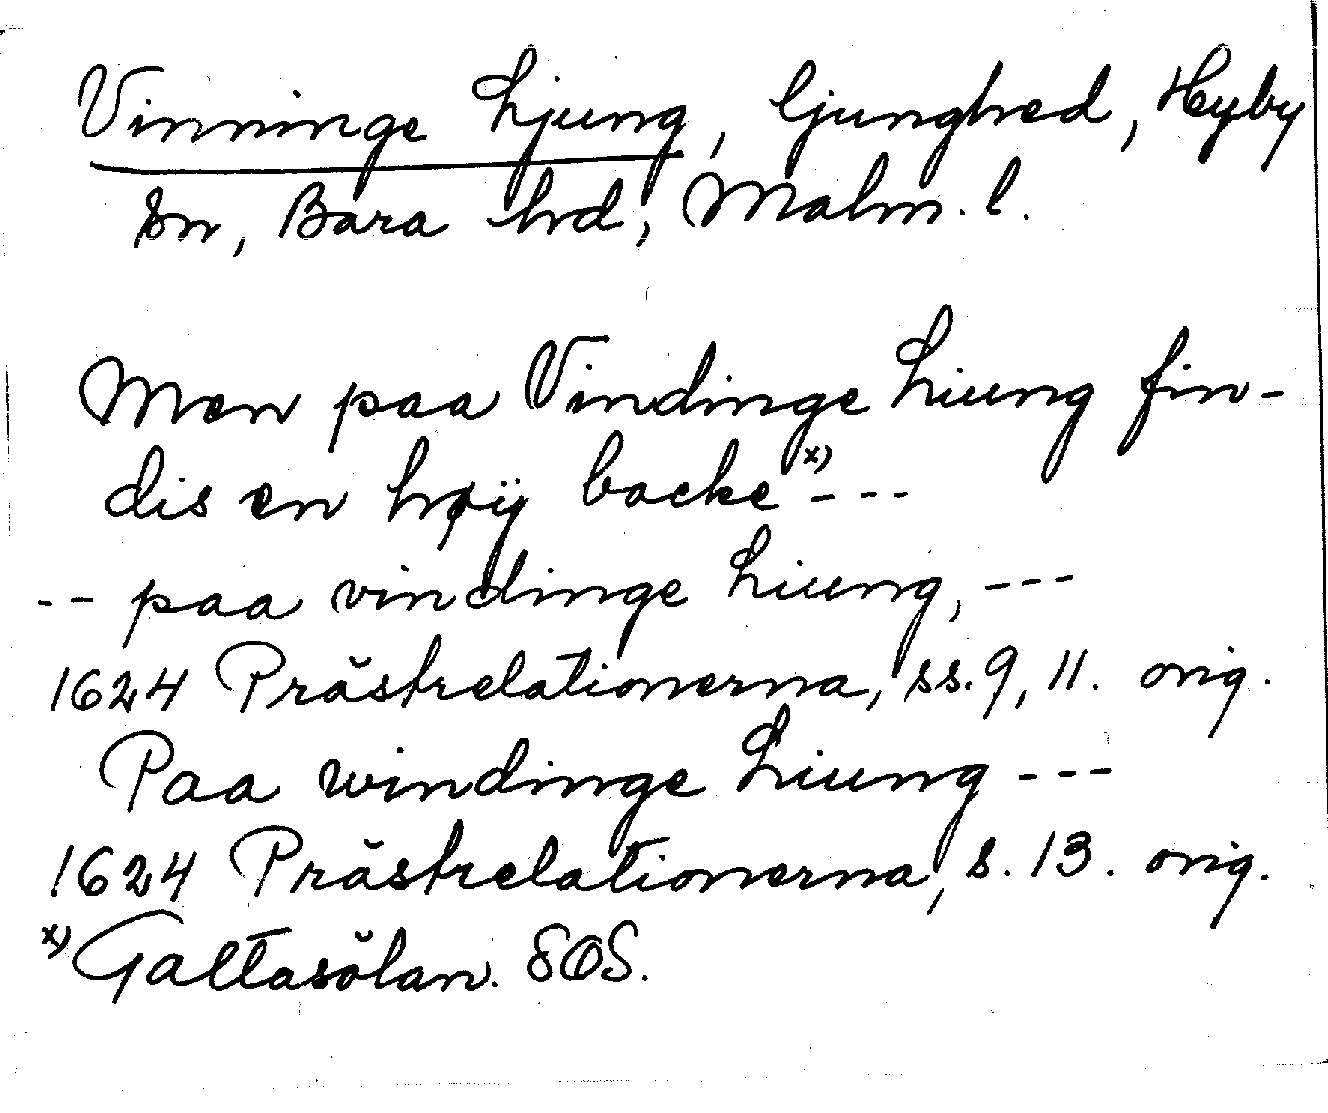 Vinninge Ljung, ljunghed, Hyby
sn, Bara hrd, Malm. l.
Men paa Vindinge Liung fin-
dis en høÿ backe x) - - -
- - paa vindinge Liung, - - -
1624 Prästrelationerna, ss. 9, 11. orig.
Paa windinge Liung - - -
1624 Prästrelationerna, s. 13. orig.
x) Galtasölan. SOS.